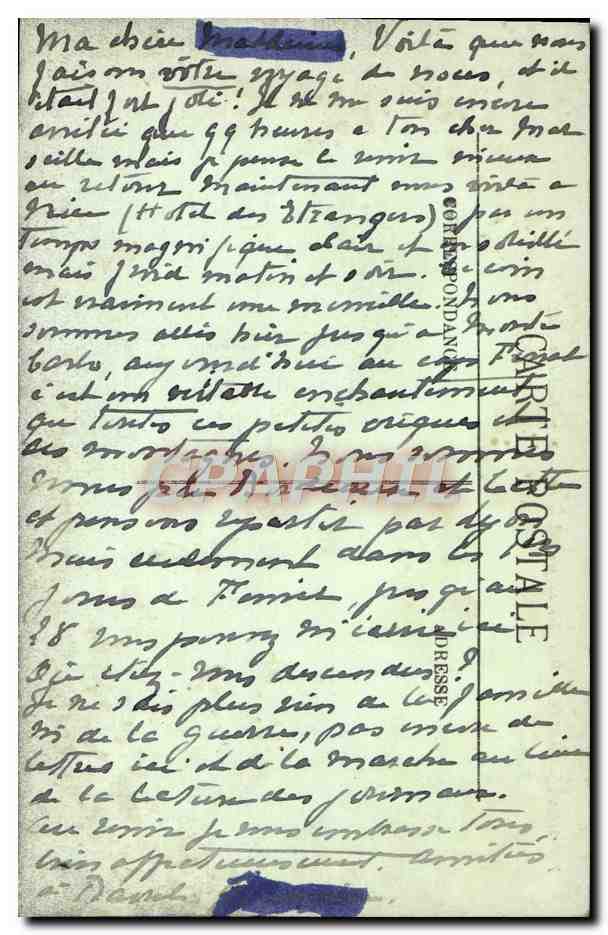 Ma chère Voilà que nous
faisons vôtre voyage de noces, et il
était fort joli! Je ne me suis encore
arrêtée que 99 heures a ton cher Mar
seille mais je pense le revoir mieux
au retour Maintenant nous voilà a
Nice (Hotel des Etrangers) par un
temps magnifique clair et ensoleillé
mais froid matin et soir. Ce coin
est vraiment une merveille. Nous
sommes allés hier jusqu'a Monte
Carlo, aujourd'hui au cap Ferrat
c'est un véritable enchantement
que toutes ces petites criques et
ces montagnes. Nous sommes
venus par et Cette
et pensons repartir par Lyon
Mais seulement dans les 1ers
jours de Fevrier, jusqu'au
28 vous pouvez m'écrire ici.
Où etes-vous descendus?
Je ne sais plus rien de la famille
ni de la guerre, pas encore de
lettres ici et de la marche au lieu
de la lecture des journaux.
Au revoir je vous embrasse tous
bien affectueusement. Amitiés
à Raoul.
CORRESPONDANCE
CARTE POSTALE
ADRESSE
CPAPHIL